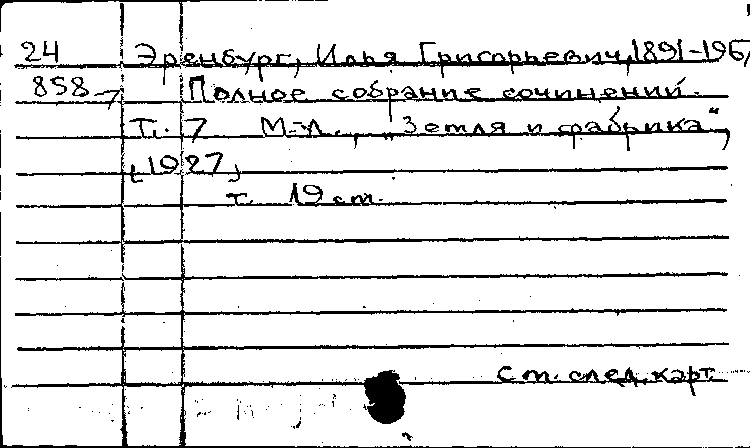 24 Эренбург, Илья Григорьевич, 1891-196
858-7 Полное собрание сочинений.
Т. 7 М.-Л., „Земля и фабрика“,
[1927]
т. 19 cm.
См. след. карт.